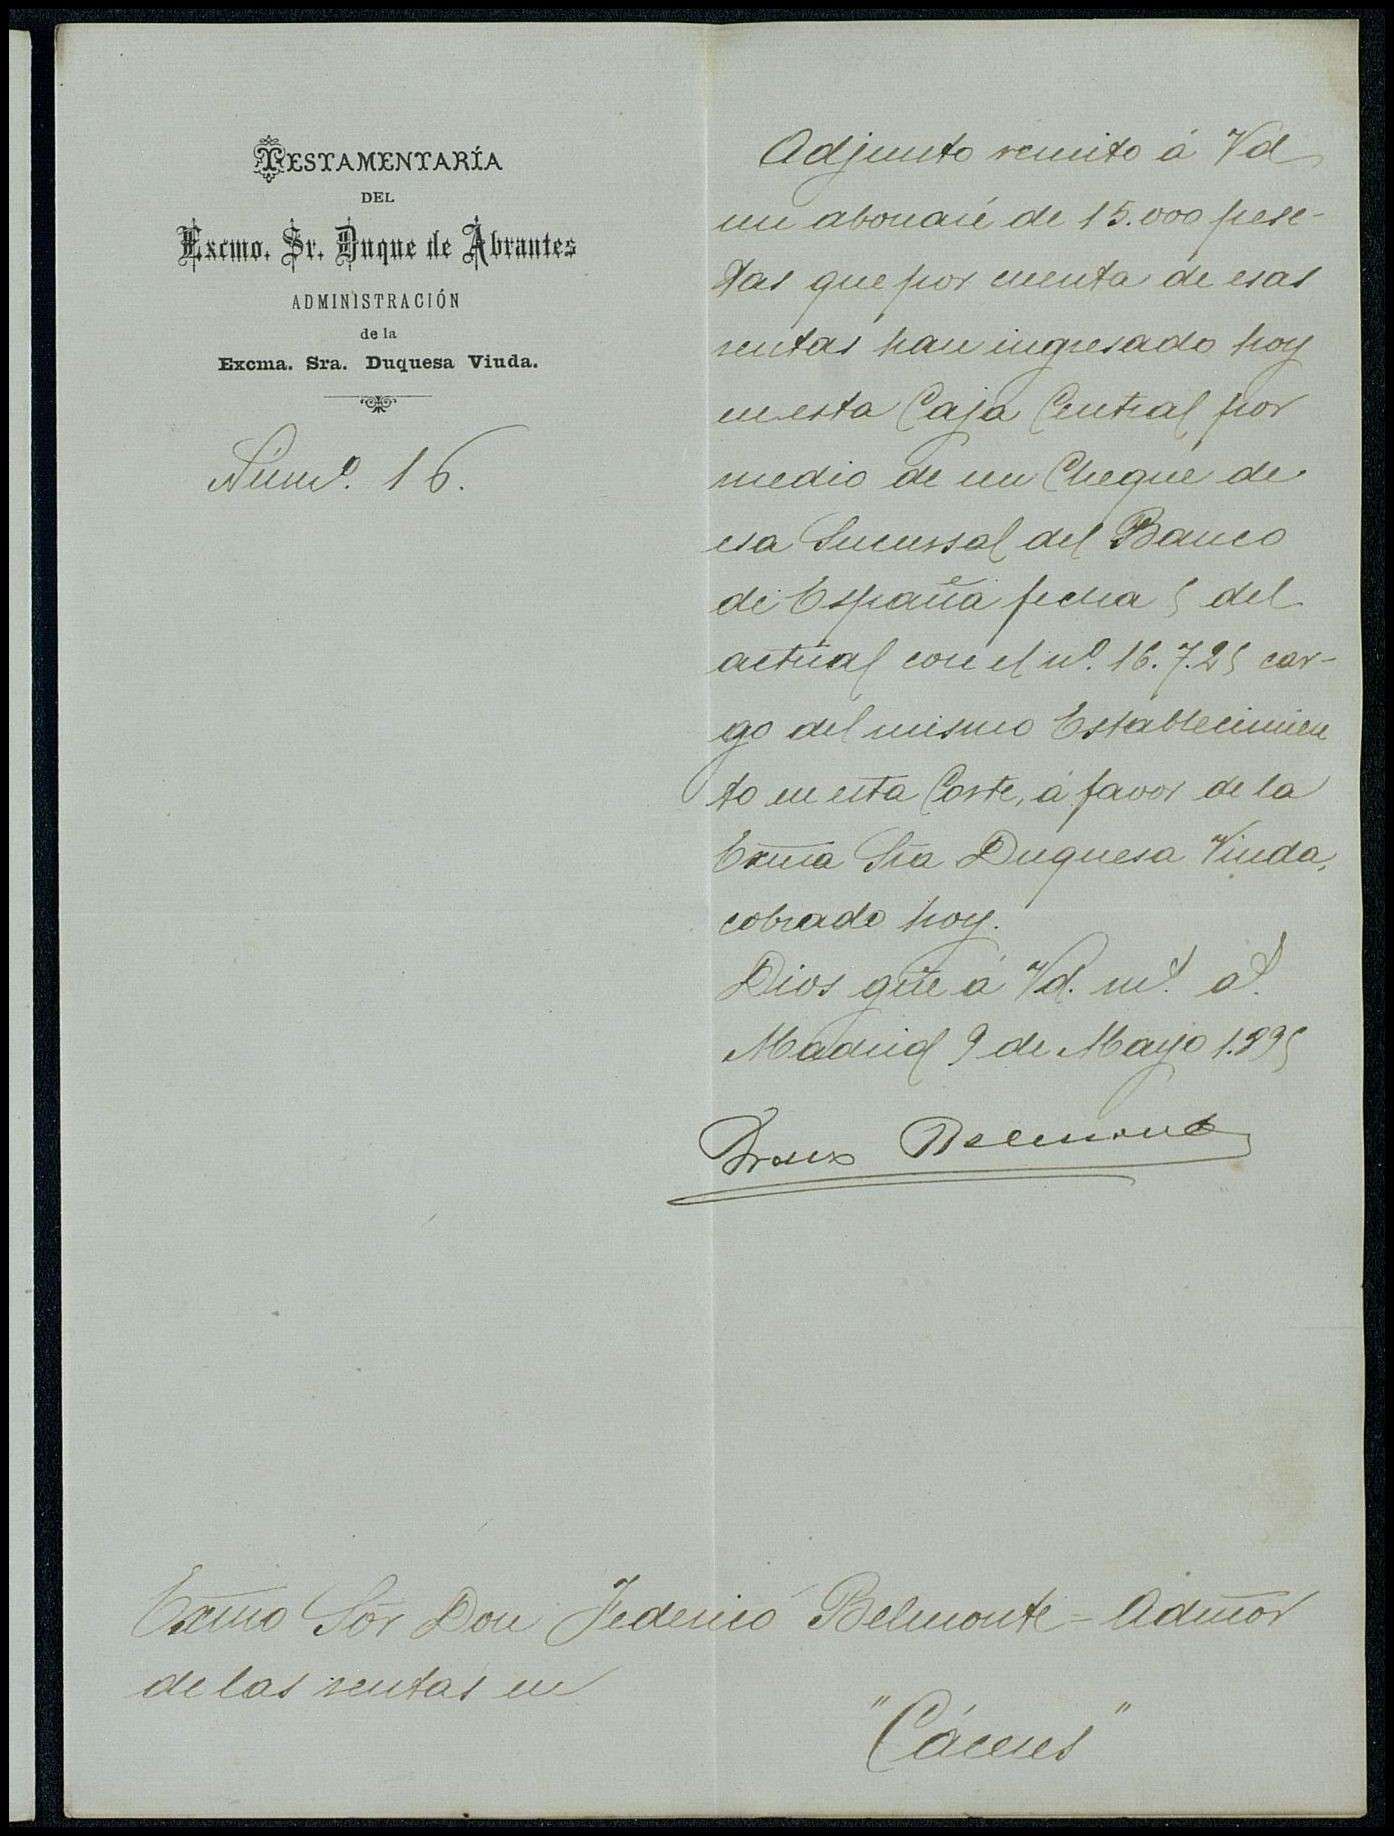 TESTAMENTARÍA
DEL
Excmo. Sr. Duque de Abrantes
ADMINISTRACIÓN
de la
Excma. Sra. Duquesa Viuda.
Núm.º 16.
Adjunto remito á Vd
un abonaré de 15.000 pese-
tas que por cuenta de esas
rentas han ingresado hoy
en esta Caja Central por
medio de un Cheque de
esa Sucursal del Banco
de España fecha 5 del
actual con el nº. 16.725 car-
go del mismo Establecimien
to en esta Corte, á favor de la
Exma Sra Duquesa Viuda,
cobrado hoy.
Dios güe á Vd. mˢ. aˢ.
Madrid 9 de Mayo 1.895
Belmonte
Exmo Sór Don Federico Belmonte - Admor
de las rentas en
"Cáceres"